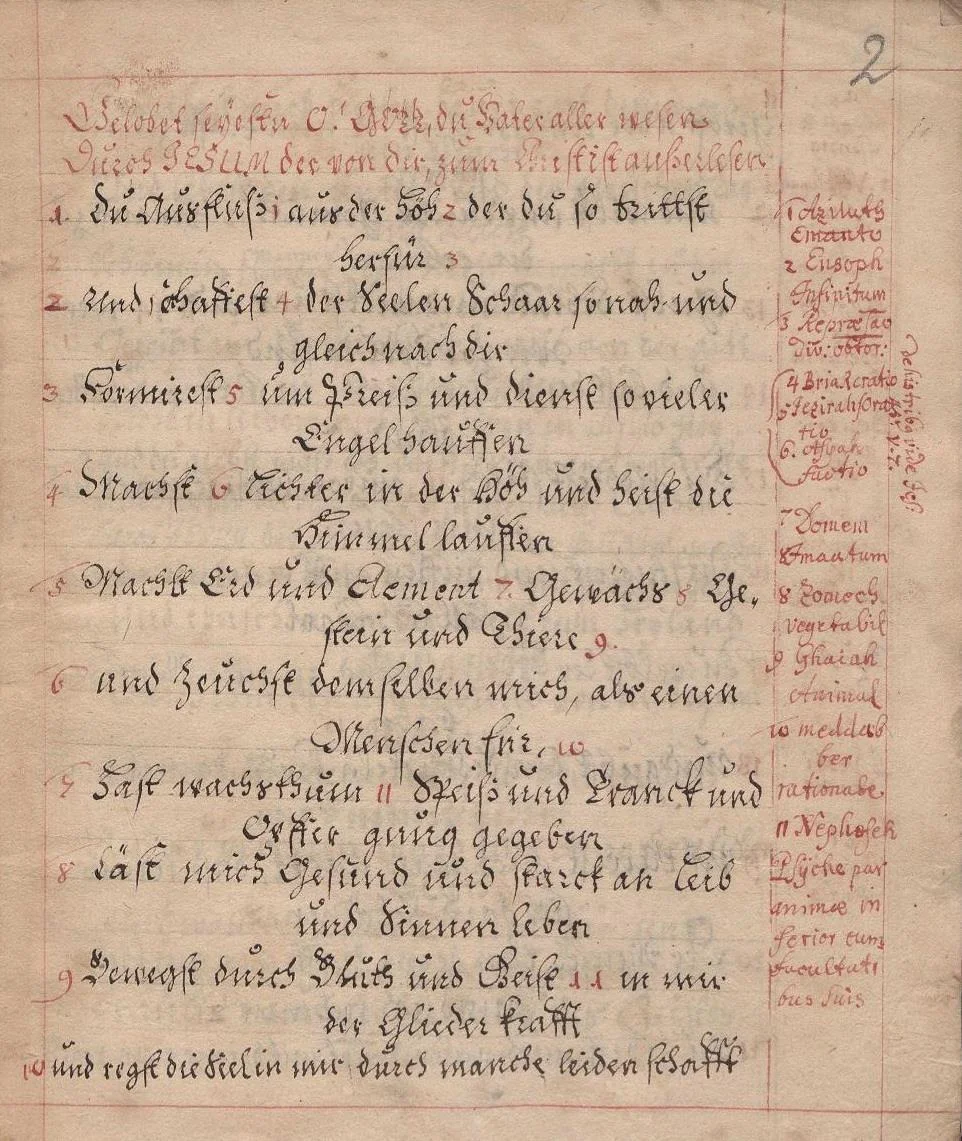 2
Gelobet seyestu O! GOTT, du Vater aller wesen
Durch JESUM der von dir, zum Christ ist außerlesen
1 Du Ausfluß 1 aus der Höh 2 der du so trittst
herfür 3
2 und schaffest 4 der Seelen Schaar so nah und
gleich nach dir
3 Formirest 5 üm Preiß und dienst so vieler
Engel hauffen
4 Machst 6 Lichter in der Höh und heist die
Himmel lauffen
5 Machst Erd und Element 7 Gewächs 8 Ge-
stein und Thiere 9.
6 und Zeuchst demselben mich, als einen
Menschen für, 10
7 Hast wachsthum 11 Speiß und Tranck und
Opffer gnug gegeben
8 Läst mich Gesund und starck an Leib
und Sinnen leben
9 Bewegst durch Bluth und Geist 11 in mir
der Glieder krafft
10 und regst die Seel in mir durch manche leidenschafft
1 Atziluth
Emanatio
2 Ensoph
Infinitum
3
Div:
4 Briah creatio
5 Jezirah forma
tio
6. Asiah
factio
7 Domem
8 Zomech
vegetabil
9 Ghaiah
Animal
10 meddab
ber
rationabe
11 Nephesch
Psyche par
animæ in
ferior cum
facultati
bus suis